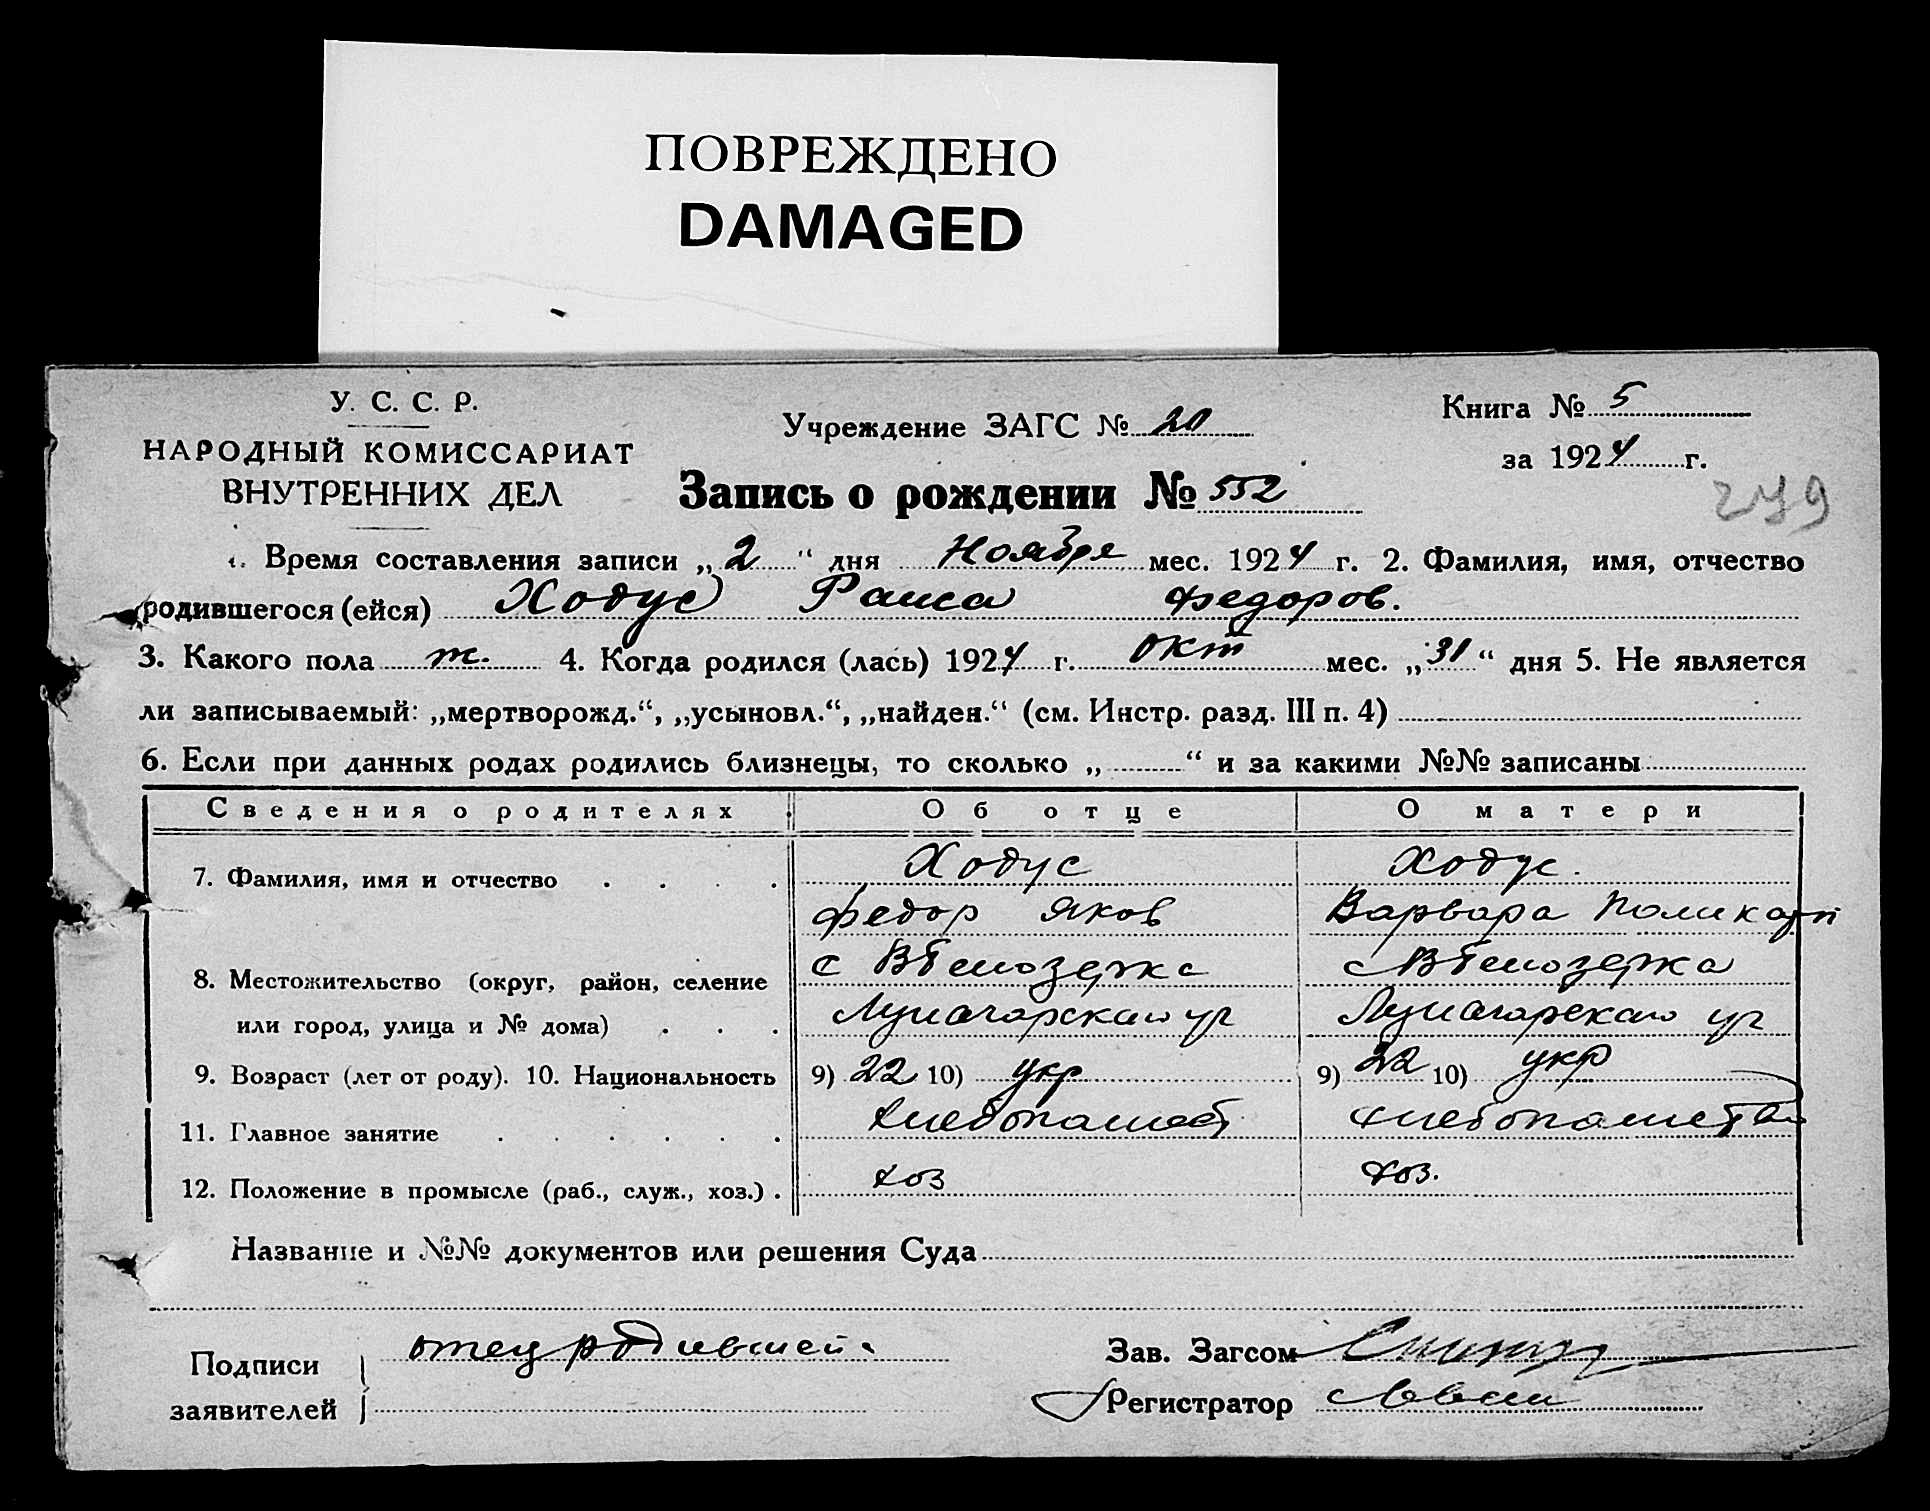 ПОВРЕЖДЕНО
DAMAGED
У. С. С. Р.
НАРОДНЫЙ КОМИССАРИАТ
ВНУТРЕННИХ ДЕЛ
Учреждение ЗАГС № 20
Книга № 5
за 1924 г.
Запись о рождении № 552
279
1. Время составления записи „2“ дня Ноября мес. 1924 г. 2. Фамилия, имя, отчество
родившегося (ейся) Ходус Раиса Федоров.
3. Какого пола ж. 4. Когда родился (лась) 1924 г. окт мес. „31“ дня 5. Не является
ли записываемый: „мертворожд.“, „усыновл.“, „найден.“ (см. Инстр. разд. III п. 4)
6. Если при данных родах родились близнецы, то сколько „ “ и за какими №№ записаны
Сведения о родителях Об отце О матери
7. Фамилия, имя и отчество Ходус Ходус.
Федор Яков Варвара Поликарп
с Белозерка с Белозерка
8. Местожительство (округ, район, селение
или город, улица и № дома)
9. Возраст (лет от роду). 10. Национальность 9) 22 10) укр 9) 22 10) укр
11. Главное занятие хлебопашест хлебопашество
12. Положение в промысле (раб., служ., хоз.) хоз хоз.
Название и №№ документов или решения Суда
Подписи отец родившей
заявителей
Зав. Загсом
Регистратор